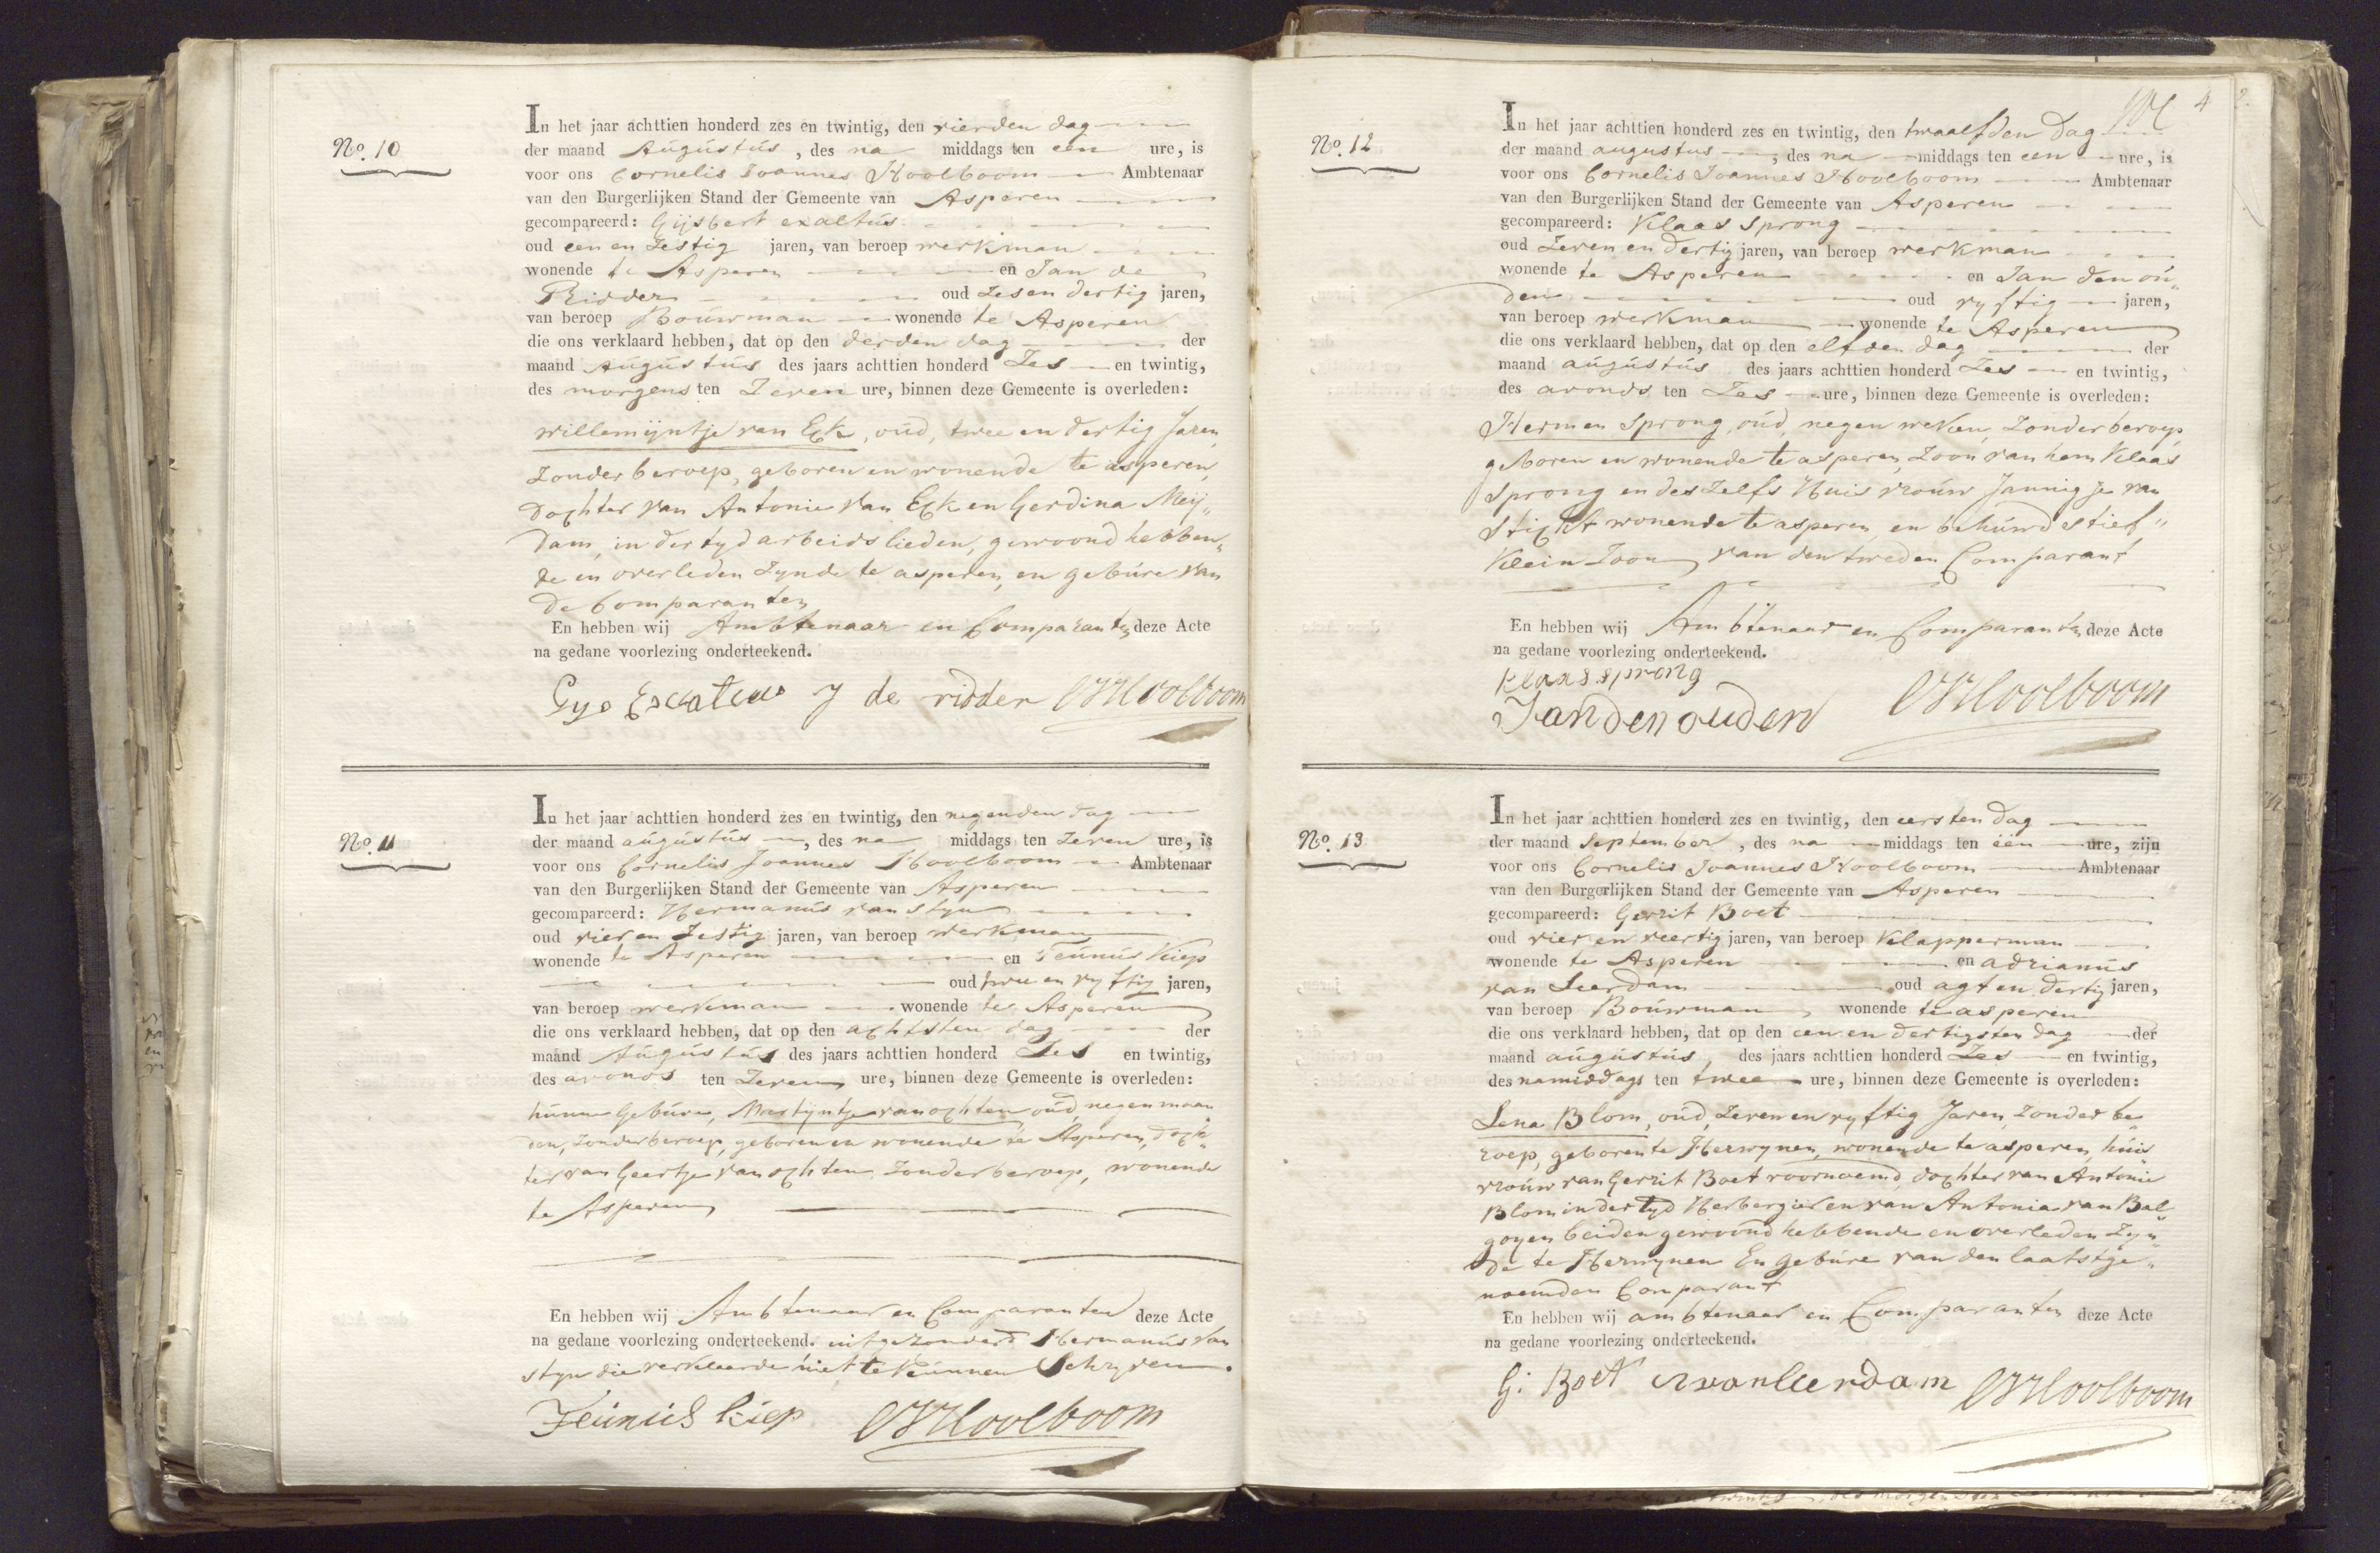 No. 10
In het jaar achttien honderd zes en twintig, den vierden dag
der maand Augustus, des na middags ten een ure, is
voor ons Cornelis Joannes Koolboom Ambtenaar
van den Burgerlijken Stand der Gemeente van Asperen
gecompareerd: Gijsbert exaltus
oud een en Zestig jaren, van beroep werkman
wonende te Asperen en Jan de
Ridder oud Zesen dertig jaren,
van beroep Bouwman wonende te Asperen
die ons verklaard hebben, dat op den derden dag der
maand Augustus des jaars achttien honderd Zes en twintig,
des morgens ten Zeven ure, binnen deze Gemeente is overleden:
willemijntje van Eck, oud, twee en dertig Jaren,
Zonder beroep, geboren en wonende te asperen,
Dochter van Antonie van Eck en Gerdina Meij„
dam, in der tyd arbeidslieden, gewoond hebben„
de en overleden Zynde te asperen, en gebure van
de Comparanten
En hebben wij Ambtenaar en Comparanten deze Acte
na gedane voorlezing onderteekend.
Gys Exaltus J de ridder CJKoolboom
No. 11
In het jaar achttien honderd zes en twintig, den negenden dag
der maand augustus, des na middags ten Zeven ure, is
voor ons Cornelis Joannes Koolboom Ambtenaar
van den Burgerlijken Stand der Gemeente van Asperen
gecompareerd: Hermanus van Styn
oud vier en Zestig jaren, van beroep werkman
wonende te Asperen en Teunus Kiep
oud twee en vyftig jaren,
van beroep werkman wonende te Asperen
die ons verklaard hebben, dat op den achtsten dag der
maand Augustus des jaars achttien honderd Zes en twintig,
des avonds ten Zeven ure, binnen deze Gemeente is overleden:
hunne Gebure, Martijntje van ochten oud negen maan„
den, Zonder beroep, geboren en wonende te Asperen, doch„
ter van Geertje van ochten Zonder beroep, wonende
te Asperen
En hebben wij Ambtenaar en Comparanten deze Acte
na gedane voorlezing onderteekend. uitgezonderd Hermanus van
Styn die verkleerde niet te Kunnen Schryven.
Teunus kiep CJKoolboom
4
No. 12
In het jaar achttien honderd zes en twintig, den twaalfden Dag
der maand augustus, des na middags ten een ure, is
voor ons Cornelis Joannes Koolboom Ambtenaar
van den Burgerlijken Stand der Gemeente van Asperen
gecompareerd: Klaas Sprong
oud Zeven en dertig jaren, van beroep werkman
wonende te Asperen en Jan den ou„
den oud vyftig jaren,
van beroep werkman wonende te Asperen
die ons verklaard hebben, dat op den elfden dag der
maand augustus des jaars achttien honderd Zes en twintig,
des avonds ten Zes ure, binnen deze Gemeente is overleden:
Hermen Sprong, oud, negen weken, Zonder beroep,
geboren en wonende te asperen, Zoon van hem Klaas
Sprong en deszelfs Huis vrouw Jannigje van
Sticht wonende te asperen, en behuwd stief„
Klein Zoon van den tweden Comparant
En hebben wij Ambtenaar en Comparanten deze Acte
na gedane voorlezing onderteekend.
klaas sprong
Jan den ouden CJKoolboom
No. 13
In het jaar achttien honderd zes en twintig, den eersten dag
der maand September, des na middags ten één ure, zijn
voor ons Cornelis Joannes Koolboom Ambtenaar
van den Burgerlijken Stand der Gemeente van Asperen
gecompareerd: Gerrit Boet
oud vier en veertig jaren, van beroep Klapperman
wonende te Asperen en adrianus
van Leerdam oud agt en dertig jaren,
van beroep Bouwman wonende te asperen
die ons verklaard hebben, dat op den een en dertigsten dag der
maand augustus, des jaars achttien honderd Zes en twintig,
des namiddags ten twee ure, binnen deze Gemeente is overleden:
Lena Blom, oud, Zeven en vyftig Jaren, Zonder be„
roep, geboren te Herwynen, wonende te asperen, huis
vrouw van Gerrit Boet voornoemd, dochter van Antonie
Blom in der tyd Herbergier en van Antonia van Bal„
goyen beiden gewoond hebbende en overleden Zyn„
de te Herwynen En gebure van den laatstge„
noemden Comparant
En hebben wij ambtenaar en Comparanten deze Acte
na gedane voorlezing onderteekend.
G: Boet A van Leerdam CJKoolboom